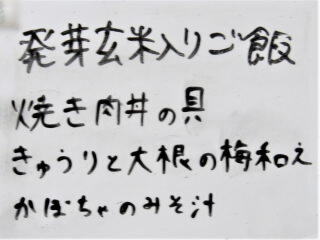 発芽玄米入りご飯
焼き肉丼の具
きゅうりと大根の梅和え
かぼちゃのみそ汁